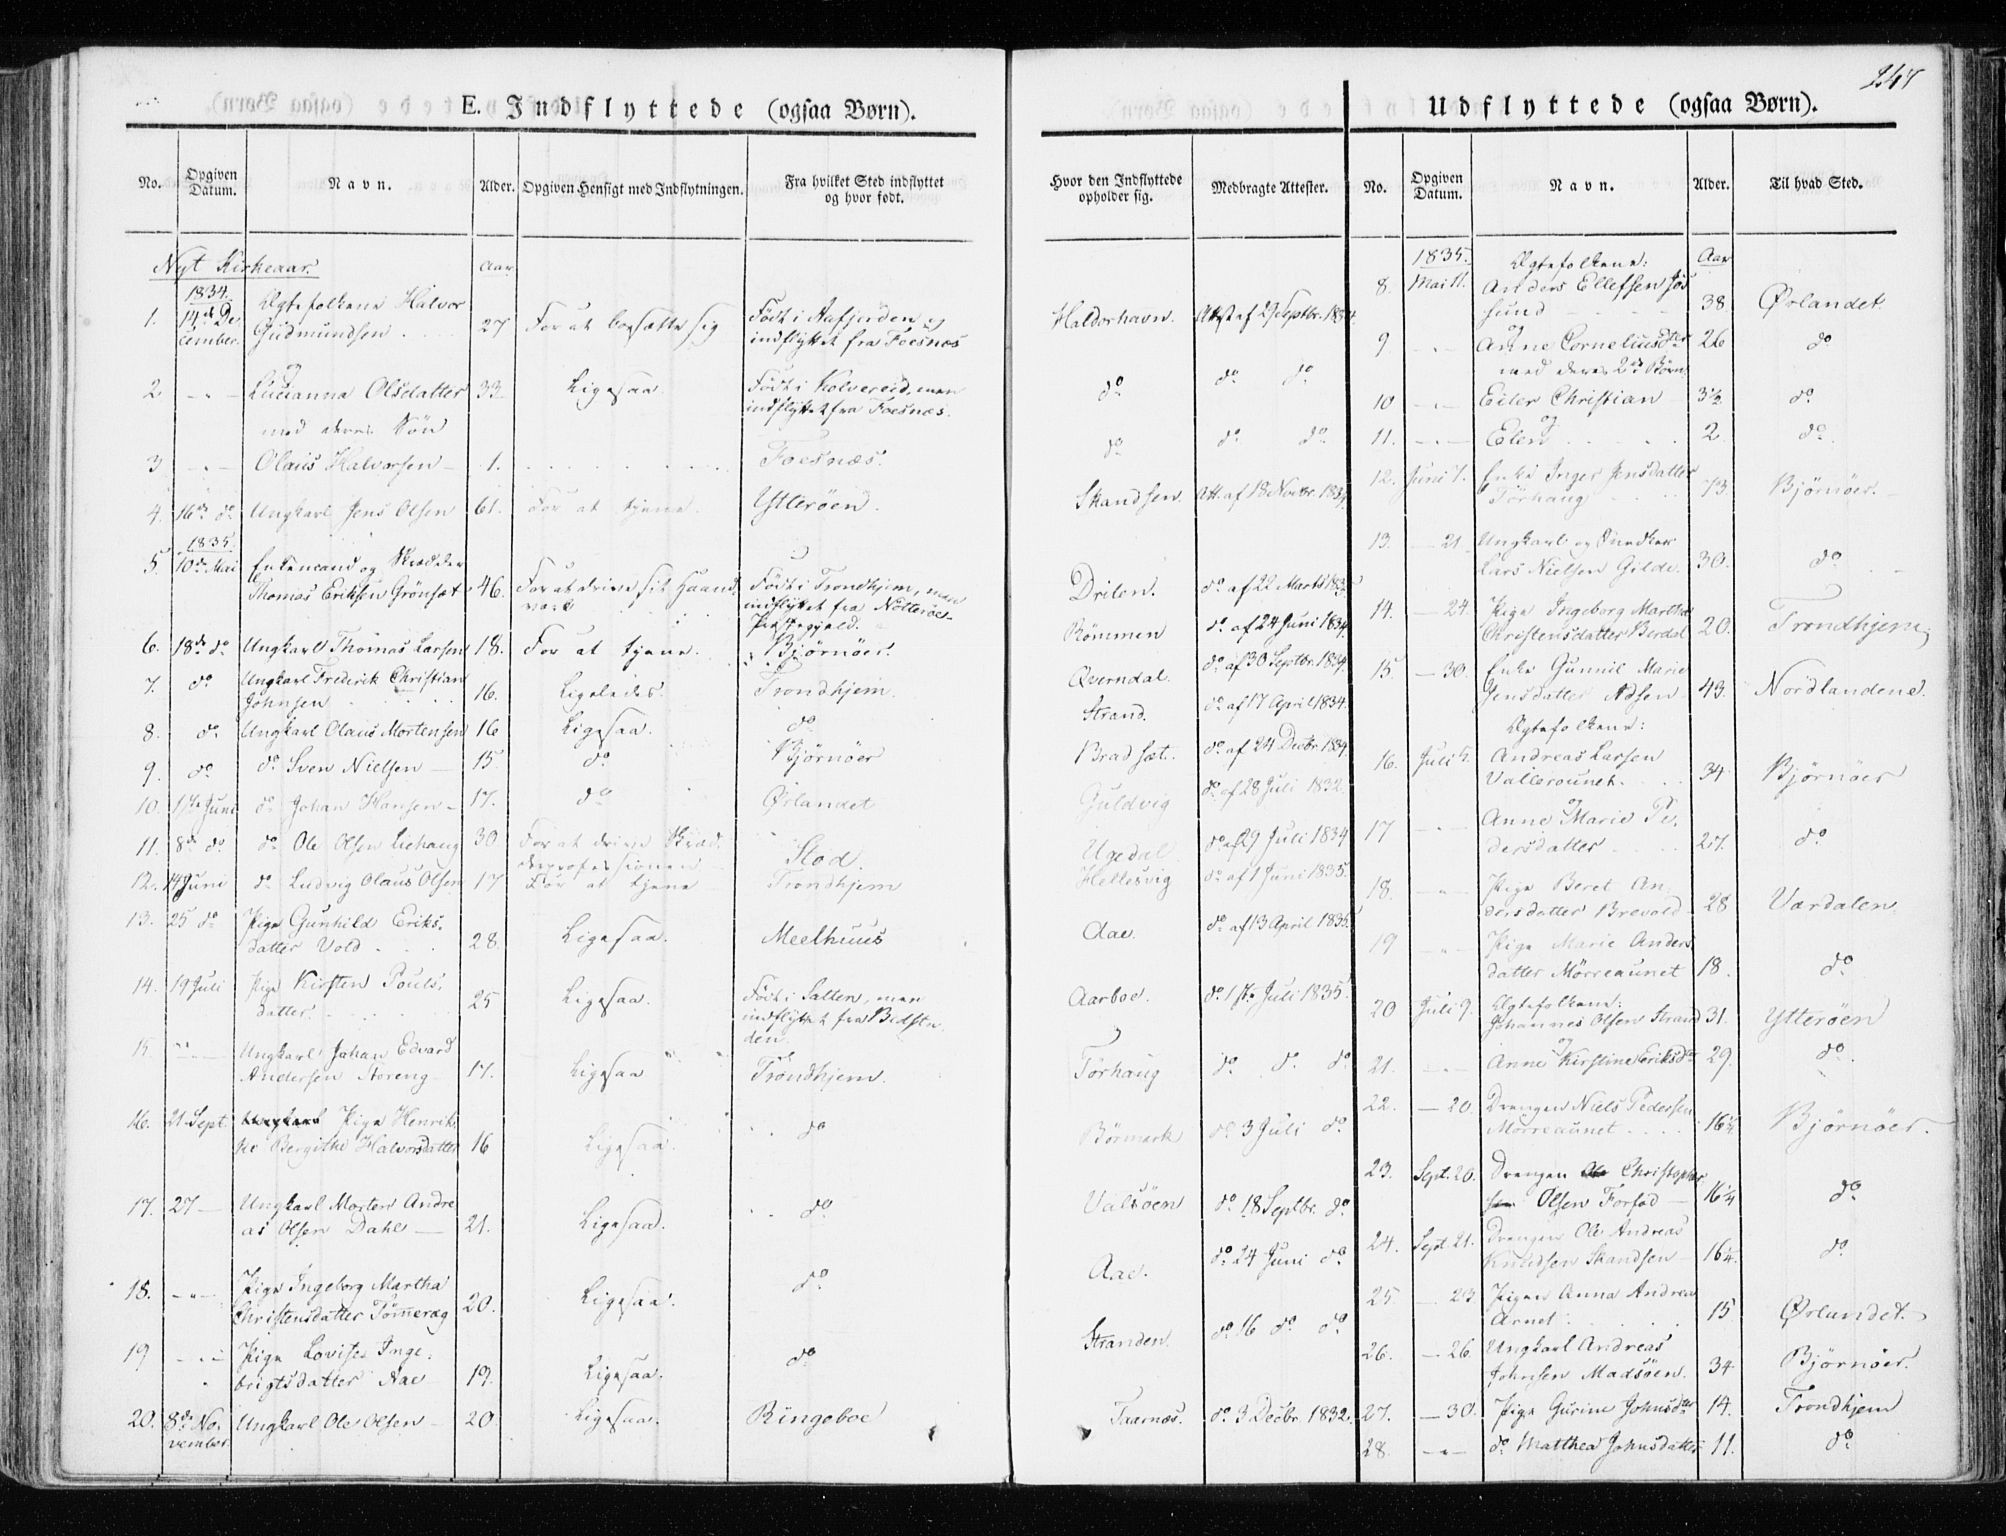 247
E. Indflyttede (ogsaa Børn).
No. | Opgiven Datum. | Navn. | Alder. | Opgiven Hensigt med Indflytningen. | Fra hvilket Sted indflyttet og hvor født.
Nyt Kirkeaar. | Aar
1834.
1. | 14de December | Ægtefolkene Halvor Gudmundsen | 27 | For at bosætte sig | Født i Aafjorden og indflyttet fra Foesnæs
og
2 | - " - | Lucianna Olsdatter med deres Søn | 33 | Ligesaa. | Født i Kolvereid, men indflyttet fra Foesnæs.
3 | - " - | Olaus Halvorsen | 1. | Foesnæs.
4. | 16de do | Ungkarl Jens Olsen | 61. | For at tjene. | Ytterøen.
1835.
5. | 10de Mai | Enkemand og Skrædder Thomas Eriksen Grönsæt | 46. | For at drive sit Haandværk | Født i Trondhjem, men indflyttet fra Præstegjeld.
6. | 18de do | Ungkarl Thomas Larsen | 18. | For at tjene. | Bjørnøer.
7. | do | Ungkarl Frederik Christian Johnsen | 16. | Ligeledes. | Trondhjem.
8. | do | Ungkarl Olaus Mortensen | 16 | Ligesaa. | do
9. | do | do Sven Nielsen | 15. | do | Bjørnøer
10. | 1ste Juni | do Johan Hansen | 17. | do | Ørlandet
11. | 8de do | do Ole Olsen Liehaug | 30 | For at drive Skrædderprofessionen | Stod.
12. | 14 Juni | do Ludvig Olaus Olsen | 17 | For at tjene | Trondhjem
13. | 25 do | Pige Gunhild Eriksdatter Vold | 28. | Ligesaa. | Meelhuus
14. | 19 Juli | Pige Kirsten Poulsdatter | 25 | Ligesaa. | Født i Salten, men indflyttet fra Bedstaden.
15. | - " - | Ungkarl Johan Edvard Andersen Aoreng | 17. | Ligesaa | Trondhjem.
16. | 21 Sept. | Pige Henrikke Bergithe Halvorsdatter | 16 | Ligesaa. | do
17. | 27 - | Ungkarl Morten Andreas Olsen Dahl | 21. | Ligesaa. | do
18. | - " - | Pige Ingeborg Martha Christensdatter Tömerag | 20. | Ligesaa. | do
19 | - " - | Pige Lovise Ingebrigtsdatter Aae | 19. | Ligesaa. | do
20. | 8de November | Ungkarl Ole Olsen | 20 | Ligesaa. | Ringeboe
Hvor den Indflyttede opholder sig. | Medbragte Attester.
Haldorhavn. | Attest af 29 Septbr. 1834.
do | do do
do | do do
Skandsen. | Att. af 18 Novbr. 1834.
Drilen. | do af 22 Marts
Römmen | do af 24 Juni 1834.
Qverndal. | do af 30 Septbr. 1834.
Strand. | do af 17 April 1834.
Bradsæt. | do af 24 Decbr. 1834.
Guldvig | do af 28 Juli 1832.
Ugedal. | do af 29 Juli 1834
Hellesvig | do af 1 Juni 1835.
Aae. | do af 13 April 1835.
Aarboe. | do 1ste Juli 1835.
Törhaug | do do do
Börmark | do 3 Juli do
Valsöen | do 18 Septbr. do
Aae. | do 24 Juni do
Stranden. | do 16 do do
Taarnæs. | do 3 Decbr. 1832.
Udflyttede (ogsaa Børn).
No. | Opgiven Datum. | Navn. | Alder. | Til hvad Sted.
1835. | Ægtefolkene: | Aar
8. | Mai 11. | Anders Ellefsen Jössund | 38 | Ørlandet.
og
9 | - " - | Anne Corneliusdter med deres 2de Børn: | 26 | do
10 | - " - | Eiler Christian | 3½ | do
og
11. | - " - | Elen | 2 | do
12. | Juni 7. | Enke Inger Jensdatter Törhaug | 73. | Bjørnøer.
13. | - 21. | Ungkarl og Snedker Lars Nielsen Gilde. | 30. | do
14. | - 24. | Pige Ingeborg Martha Christensdatter Berdal | 20. | Trondhjem.
15. | - 30. | Enke Gunnil Marie Jensdatter Adsen | 43. | Nordlandene.
Ægtefolkene:
16. | Juli 5. | Andreas Larsen Vallersunet. | 34 | Bjørnøer
og
17 | - " - | Anne Marie Pedersdatter | 27. | do
18. | - " - | Pige Beret Andersdatter Brevold | 28 | Værdalen.
19 | - " - | Pige Marie Andersdatter Mörreaunet | 18. | do
20 | Juli 9. | Ægtefolkene: Johannes Olsen Strand | 31. | Ytterøen
og
21. | - " - | Anne Kirstine Eriksdr | 29. | do.
22. | - 20. | Drengen Niels Pedersen Mörreaunet | 16¼ | Bjørnøer.
23. | Sept. 20. | Drengen Christopher Olsen Forfod | 16¼ | do
24. | Sept. 21. | Drengen Ole Andreas Knudsen Skandsen | 16¼ | do
25 | - 23 | Pigen Anna Andrea Arnet | 15 | Ørlandet.
26. | - 26 | Ungkarl Andreas Johnsen Madsöen. | 34 | Bjørnøer.
27. | - 30. | Pige Gurine Johnsdr | 14. | Trondhjem
28. | - " - | do Matthea Johnsdatter | 11. | do